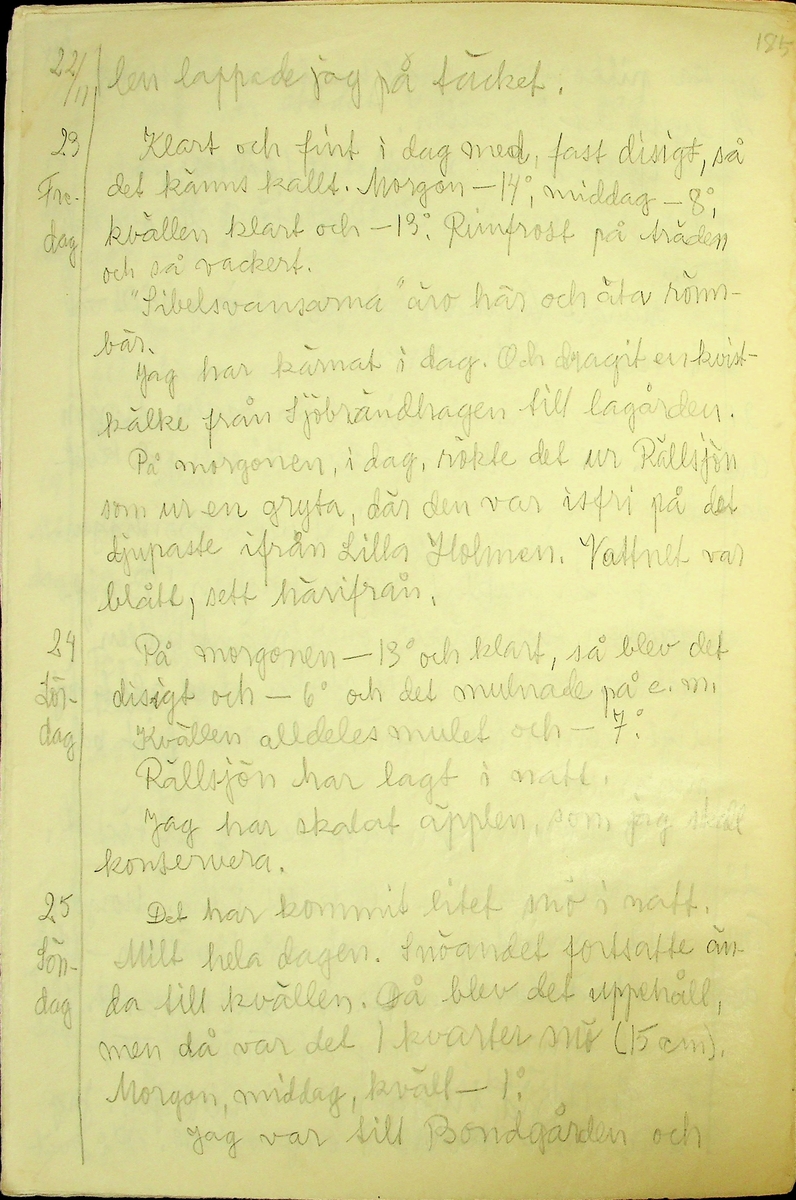 185
22/11 len lappade jag på täcket.
23 Klart och fint i dag med, fast disigt, så
Fre- det känns kallt. Morgon -14°, middag -8°,
dag kvällen klart och -13°. Rimfrost på träden
och så vackert.
"Sibelsvansarna" äro här och äta rönn-
bär.
Jag har kärnat i dag. Och dragit en kvist-
kälke från Sjöbrändhagen till lagården.
På morgonen, i dag, rökte det ur Rällsjön
som ur en gryta, där den var isfri på det
djupaste ifrån Lilla Holmen. Vattnet var
blått, sett härifrån.
24 På morgonen -13° och klart, så blev det
Lör- disigt och -6° och det mulnade på e.m.
dag Kvällen alldeles mulet och -7°.
Rällsjön har lagt i natt.
Jag har skalat äpplen, som jag skall
konservera.
25 Det har kommit litet snö i natt.
Sön- Milt hela dagen. Snöandet fortsatte än-
dag da till kvällen. Då blev det uppehåll,
men då var det 1 kvarter snö (15 cm).
Morgon, middag, kväll -1°.
Jag var till Bondgården och